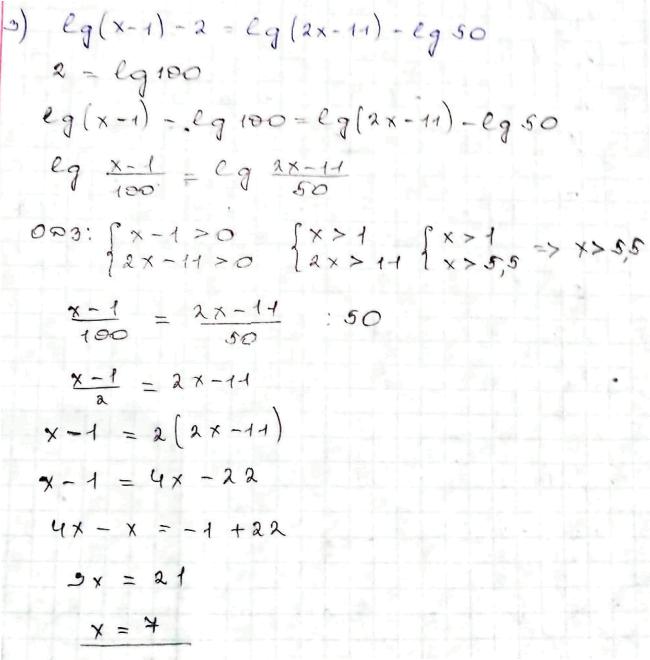 3) lg(x-1) - 2 = lg(2x-11) - lg 50
2 = lg 100
lg(x-1) - lg 100 = lg(2x-11) - lg 50
lg (x-1)/100 = lg (2x-11)/50
ОДЗ: { x-1>0 2x-11>0 { x>1 2x>11 { x>1 x>5,5 => x>5,5
(x-1)/100 = (2x-11)/50 : 50
(x-1)/2 = 2x-11
x-1 = 2(2x-11)
x-1 = 4x-22
4x-x = -1+22
3x = 21
x = 7